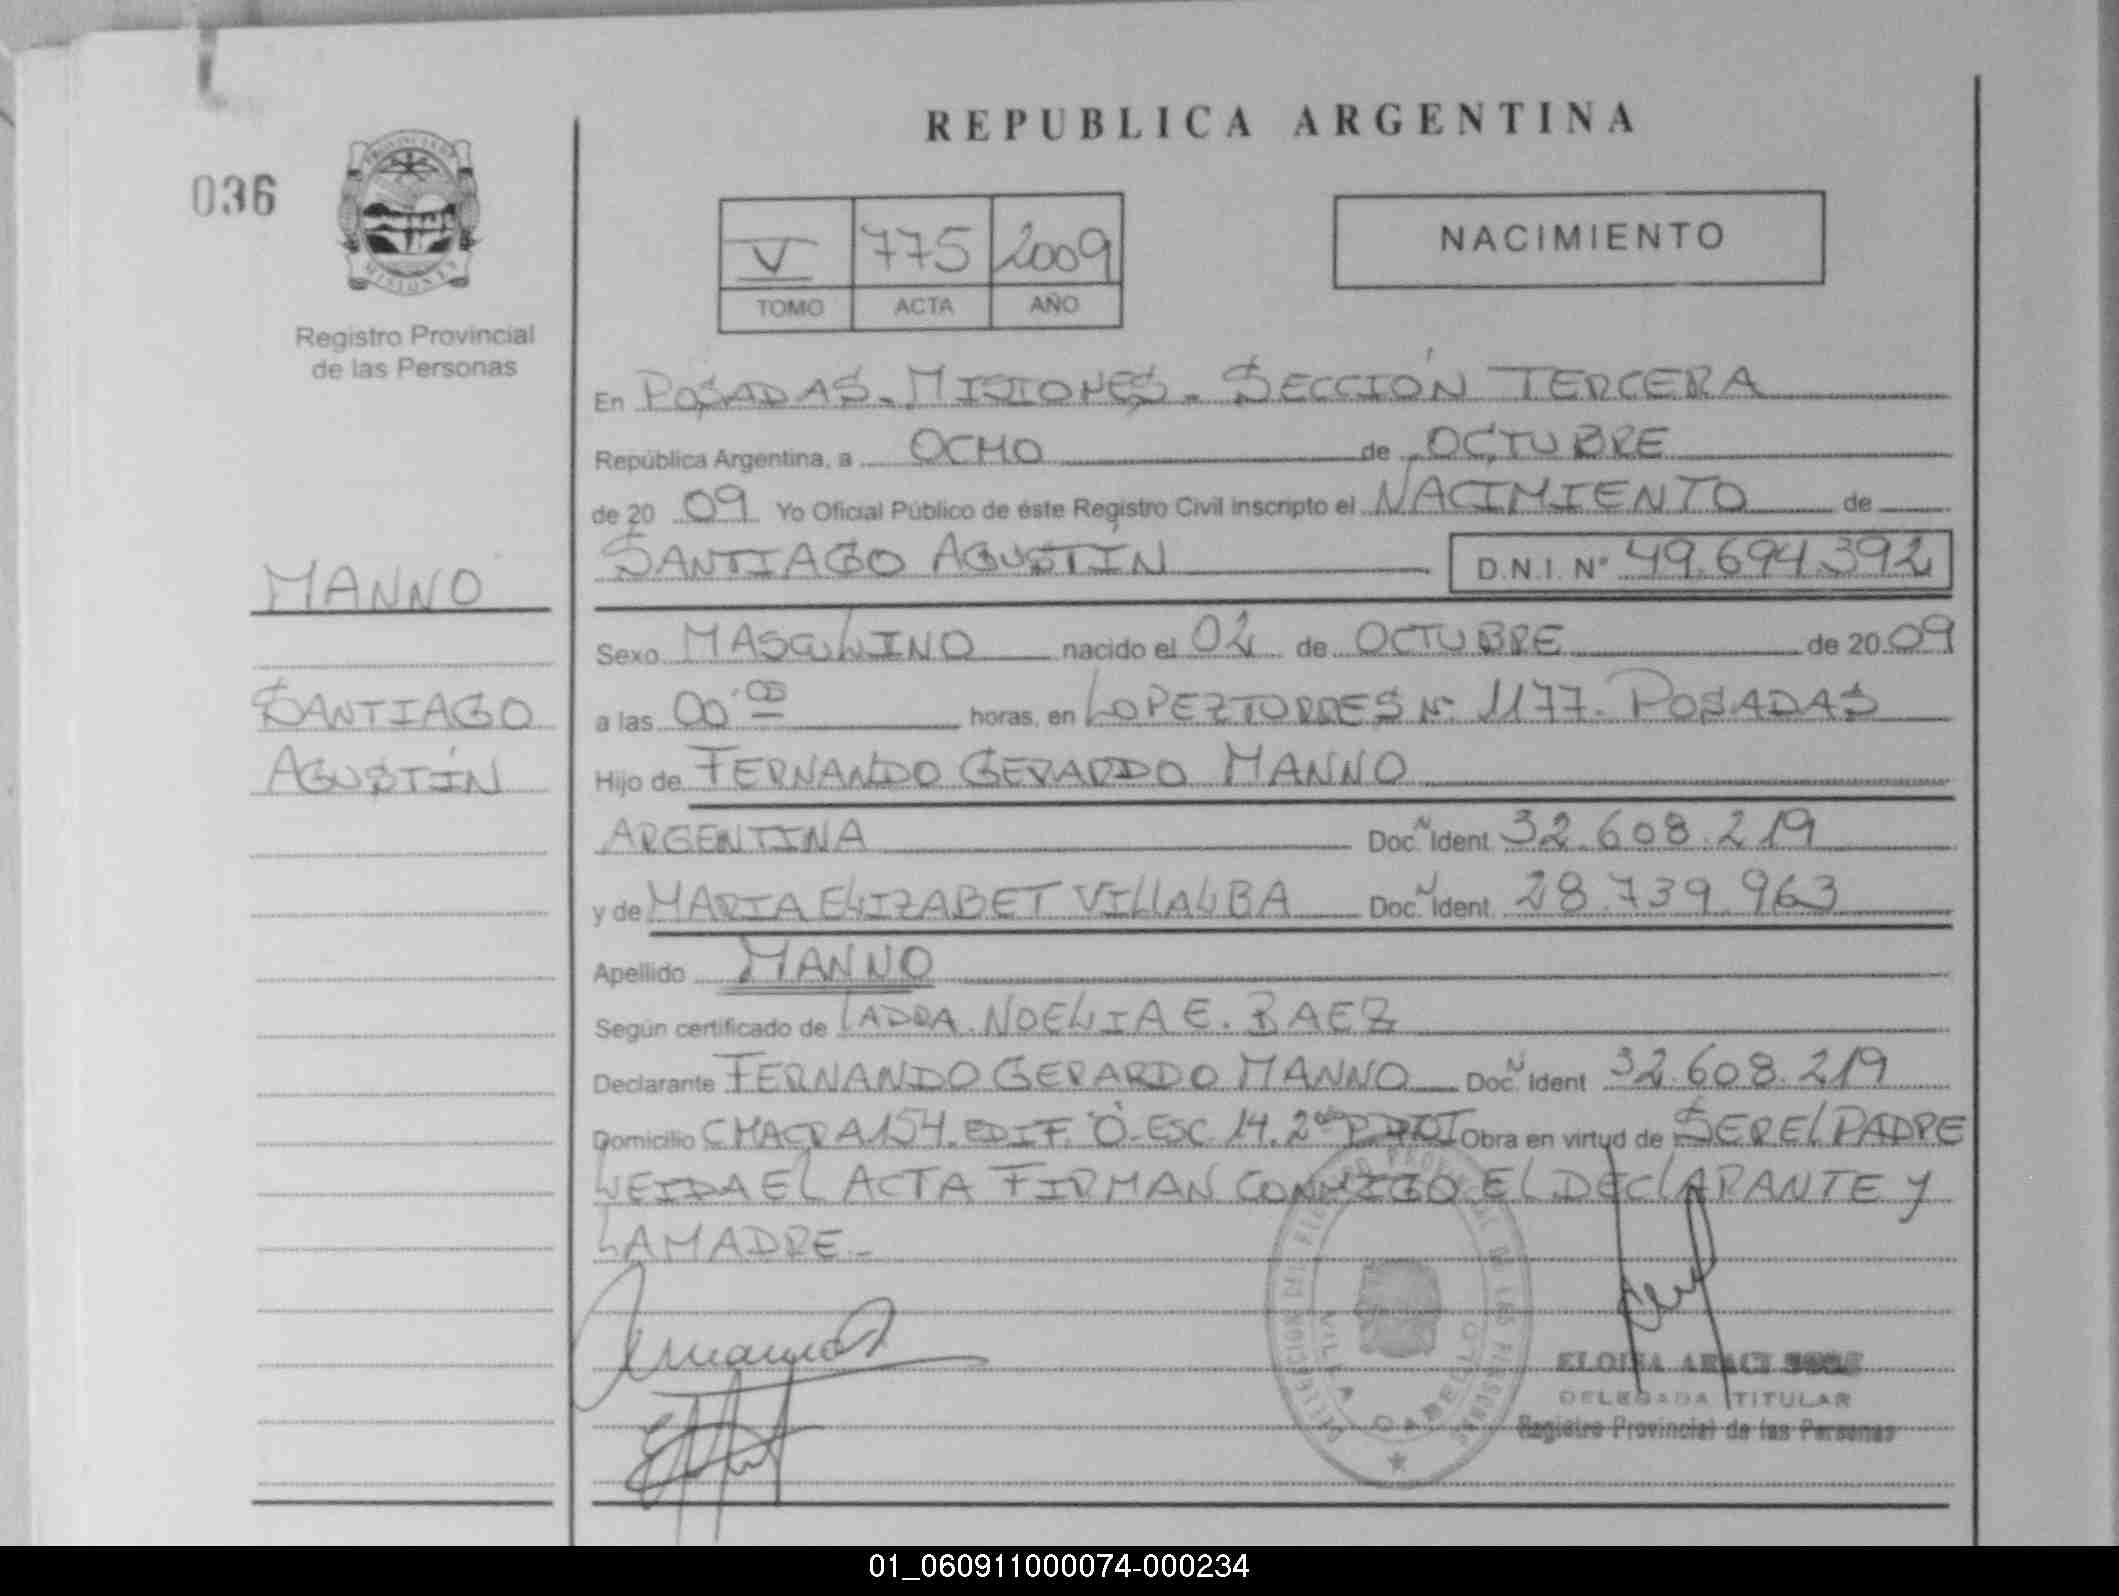 REPUBLICA ARGENTINA
036
PROVINCIA DE
MISIONES
Registro Provincial
de las Personas
V 775 2009
TOMO ACTA AÑO
NACIMIENTO
En POSADAS - MISIONES - SECCIÓN TERCERA
República Argentina, a OCHO de OCTUBRE
de 20 09 Yo Oficial Público de éste Registro Civil inscripto el NACIMIENTO de
SANTIAGO AGUSTÍN D.N.I. Nº 49.694.392
MANNO
SANTIAGO
AGUSTÍN
Sexo MASCULINO nacido el 02 de OCTUBRE de 20 09
a las 00.00 horas, en LOPEZ TORRES Nº 1177. POSADAS
Hijo de FERNANDO GERARDO MANNO
ARGENTINA Doc. N Ident 32.608.219
y de MARIA ELIZABET VILLALBA Doc. N Ident. 28.739.963
Apellido MANNO
Según certificado de LADRA. NOELIA E. BAEZ
Declarante FERNANDO GERARDO MANNO Doc. N Ident 32.608.219
Domicilio CHACRA 154. EDIF. O - ESC 14. 2º Obra en virtud de SER EL PADRE
LEIDA EL ACTA FIRMAN CONMIGO EL DECLARANTE Y
LA MADRE.-
VILLA CABELLO
DELEGADA TITULAR
Registro Provincial de las Personas
01_060911000074-000234